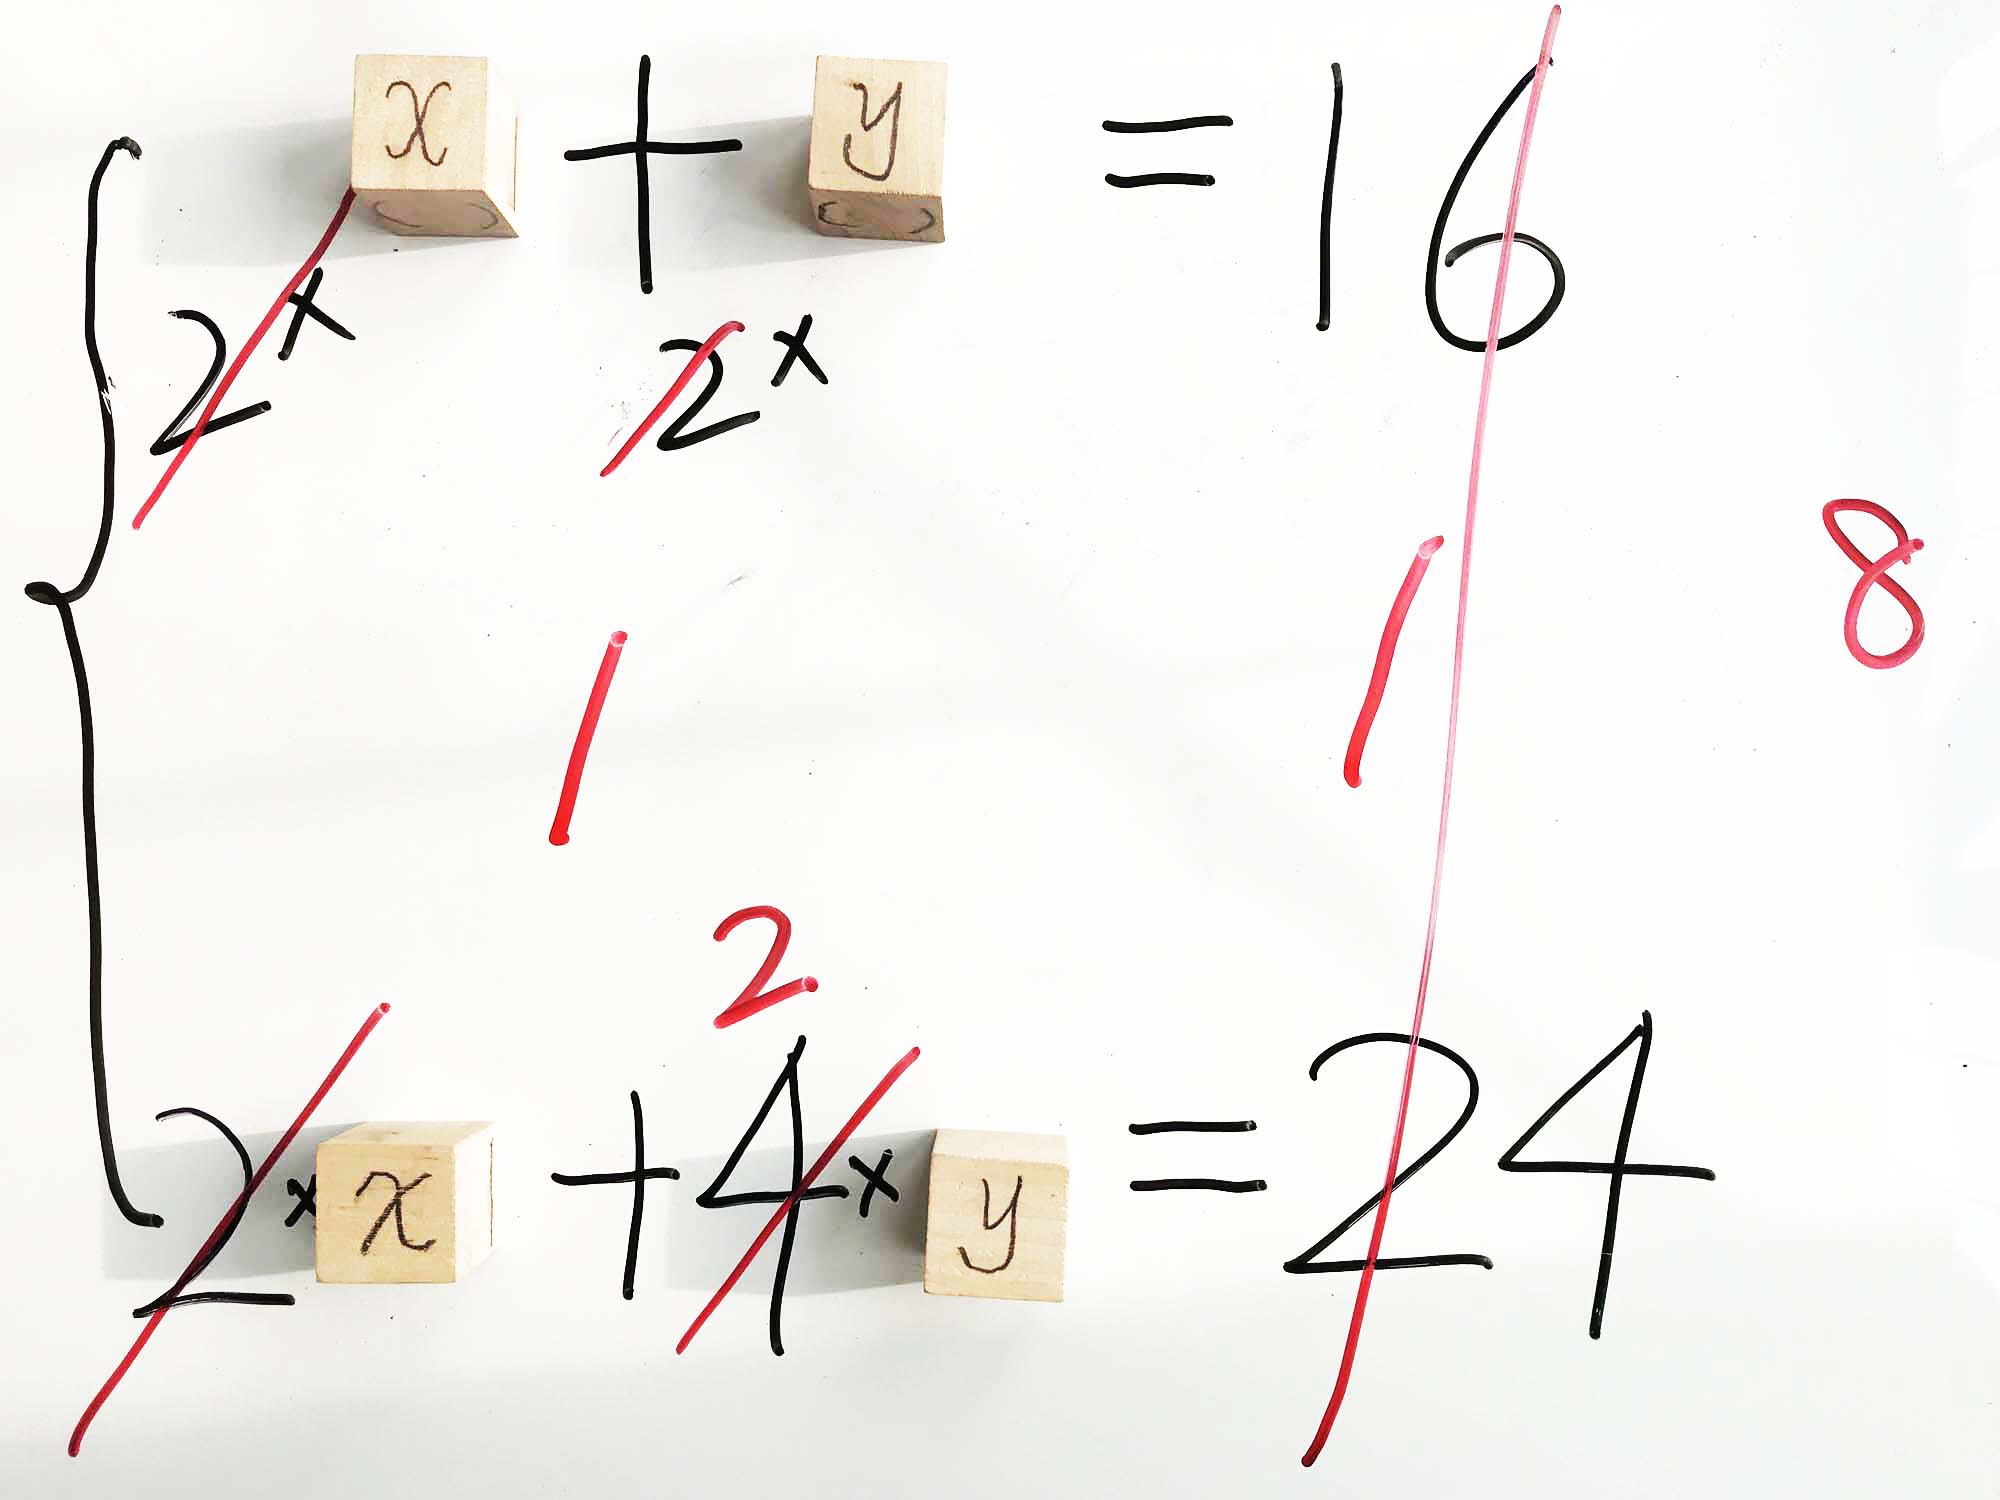 x + y = 16
2× 2×
1 1 8
2
2× x + 4× y = 24